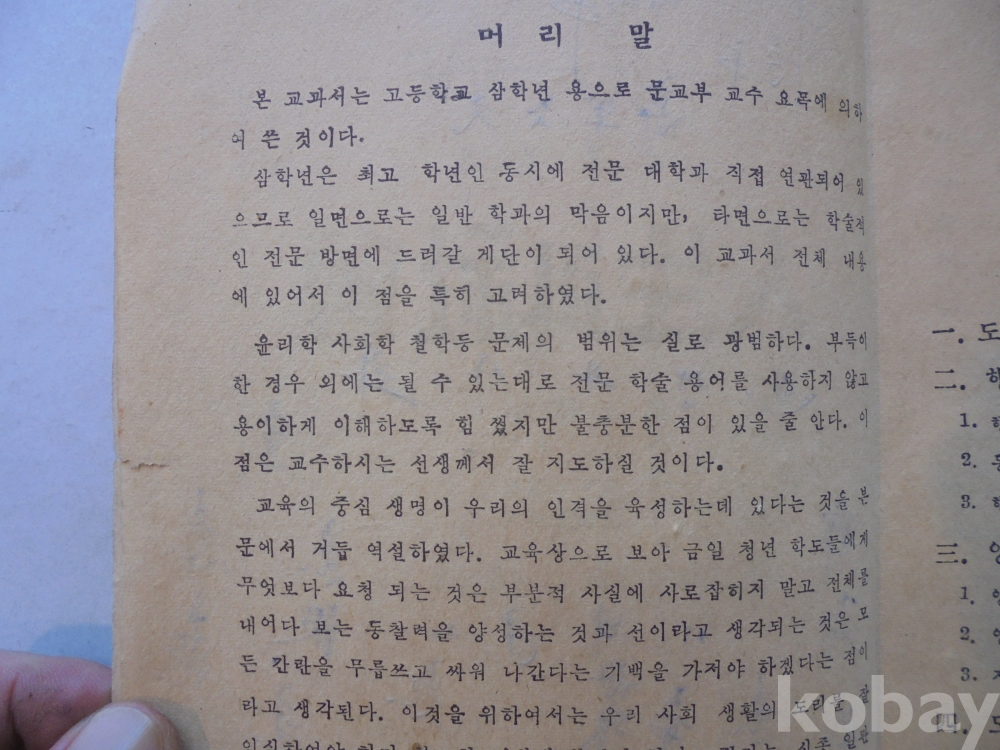 머 리 말
본 교과서는 고등학교 삼학년 용으로 문교부 교수 요목에 의하
여 쓴 것이다.
삼학년은 최고 학년인 동시에 전문 대학과 직접 연관되어 있
으므로 일면으로는 일반 학과의 막음이지만, 타면으로는 학술적
인 전문 방면에 드러갈 게단이 되어 있다. 이 교과서 전체 내용
에 있어서 이 점을 특히 고려하였다.
윤리학 사회학 철학등 문제의 범위는 실로 광범하다. 부득이
한 경우 외에는 될 수 있는대로 전문 학술 용어를 사용하지 않고
용이하게 이해하도록 힘 썼지만 불충분한 점이 있을 줄 안다. 이
점은 교수하시는 선생께서 잘 지도하실 것이다.
교육의 중심 생명이 우리의 인격을 육성하는데 있다는 것을 본
문에서 거듭 역설하였다. 교육상으로 보아 금일 청년 학도들에게
무엇보다 요청 되는 것은 부분적 사실에 사로잡히지 말고 전체를
내어다 보는 통찰력을 양성하는 것과 선이라고 생각되는 것은 모
든 간란을 무릅쓰고 싸워 나간다는 기백을 가저야 하겠다는 점이
라고 생각된다. 이것을 위하여서는 우리 사회 생활의 도리를
一. 도
二.
1.
2.
3.
三.
1.
2.
3.
四.
kobay